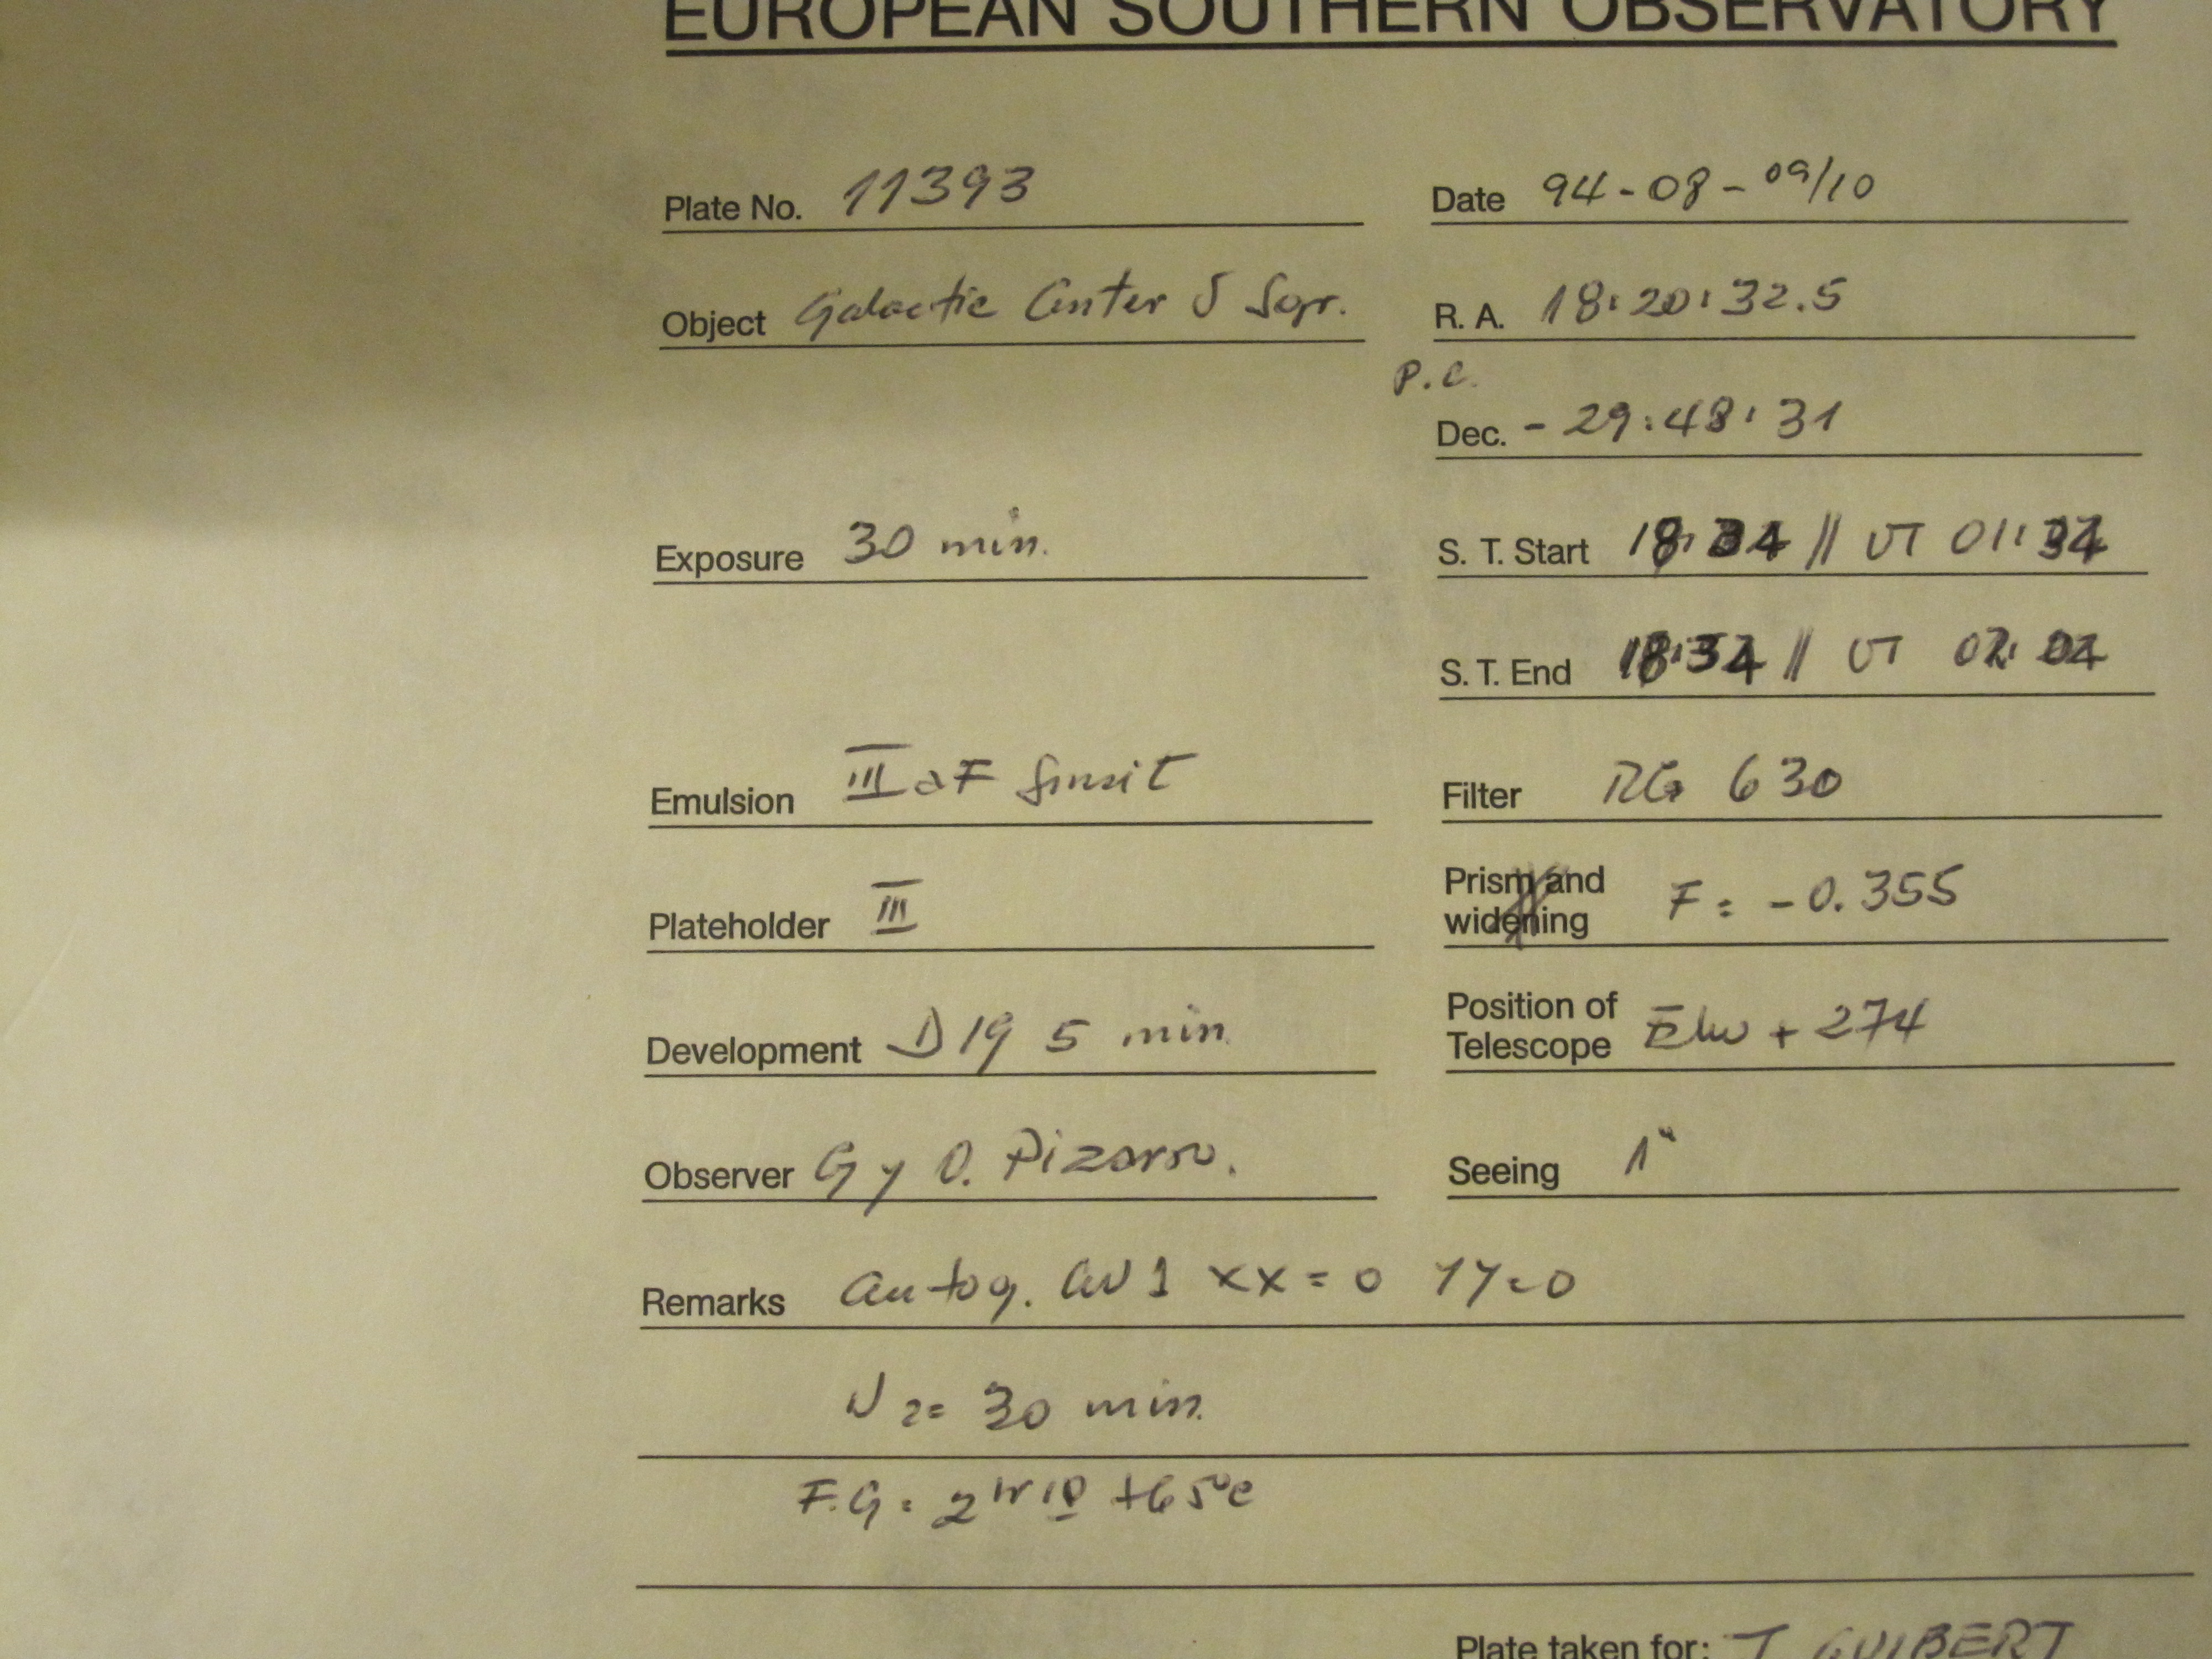 EUROPEAN SOUTHERN OBSERVATORY
Plate No. 11393 Date 94-08-09/10
Object Galactic Center Sgr. R. A. 18:20:32.5
P.C.
Dec. -29:48:31
Exposure 30 min. S. T. Start 18: // UT 01:
S. T. End // UT 02:
Emulsion III aF Filter RG 630
Plateholder III Prism and widening F = -0.355
Development D19 5 min. Position of Telescope + 274
Observer G y O. Pizarro. Seeing 1"
Remarks autog. xx=0 yy=0
N2= 30 min.
F.G: 2hr +65°C
Plate taken for: GUIBERT